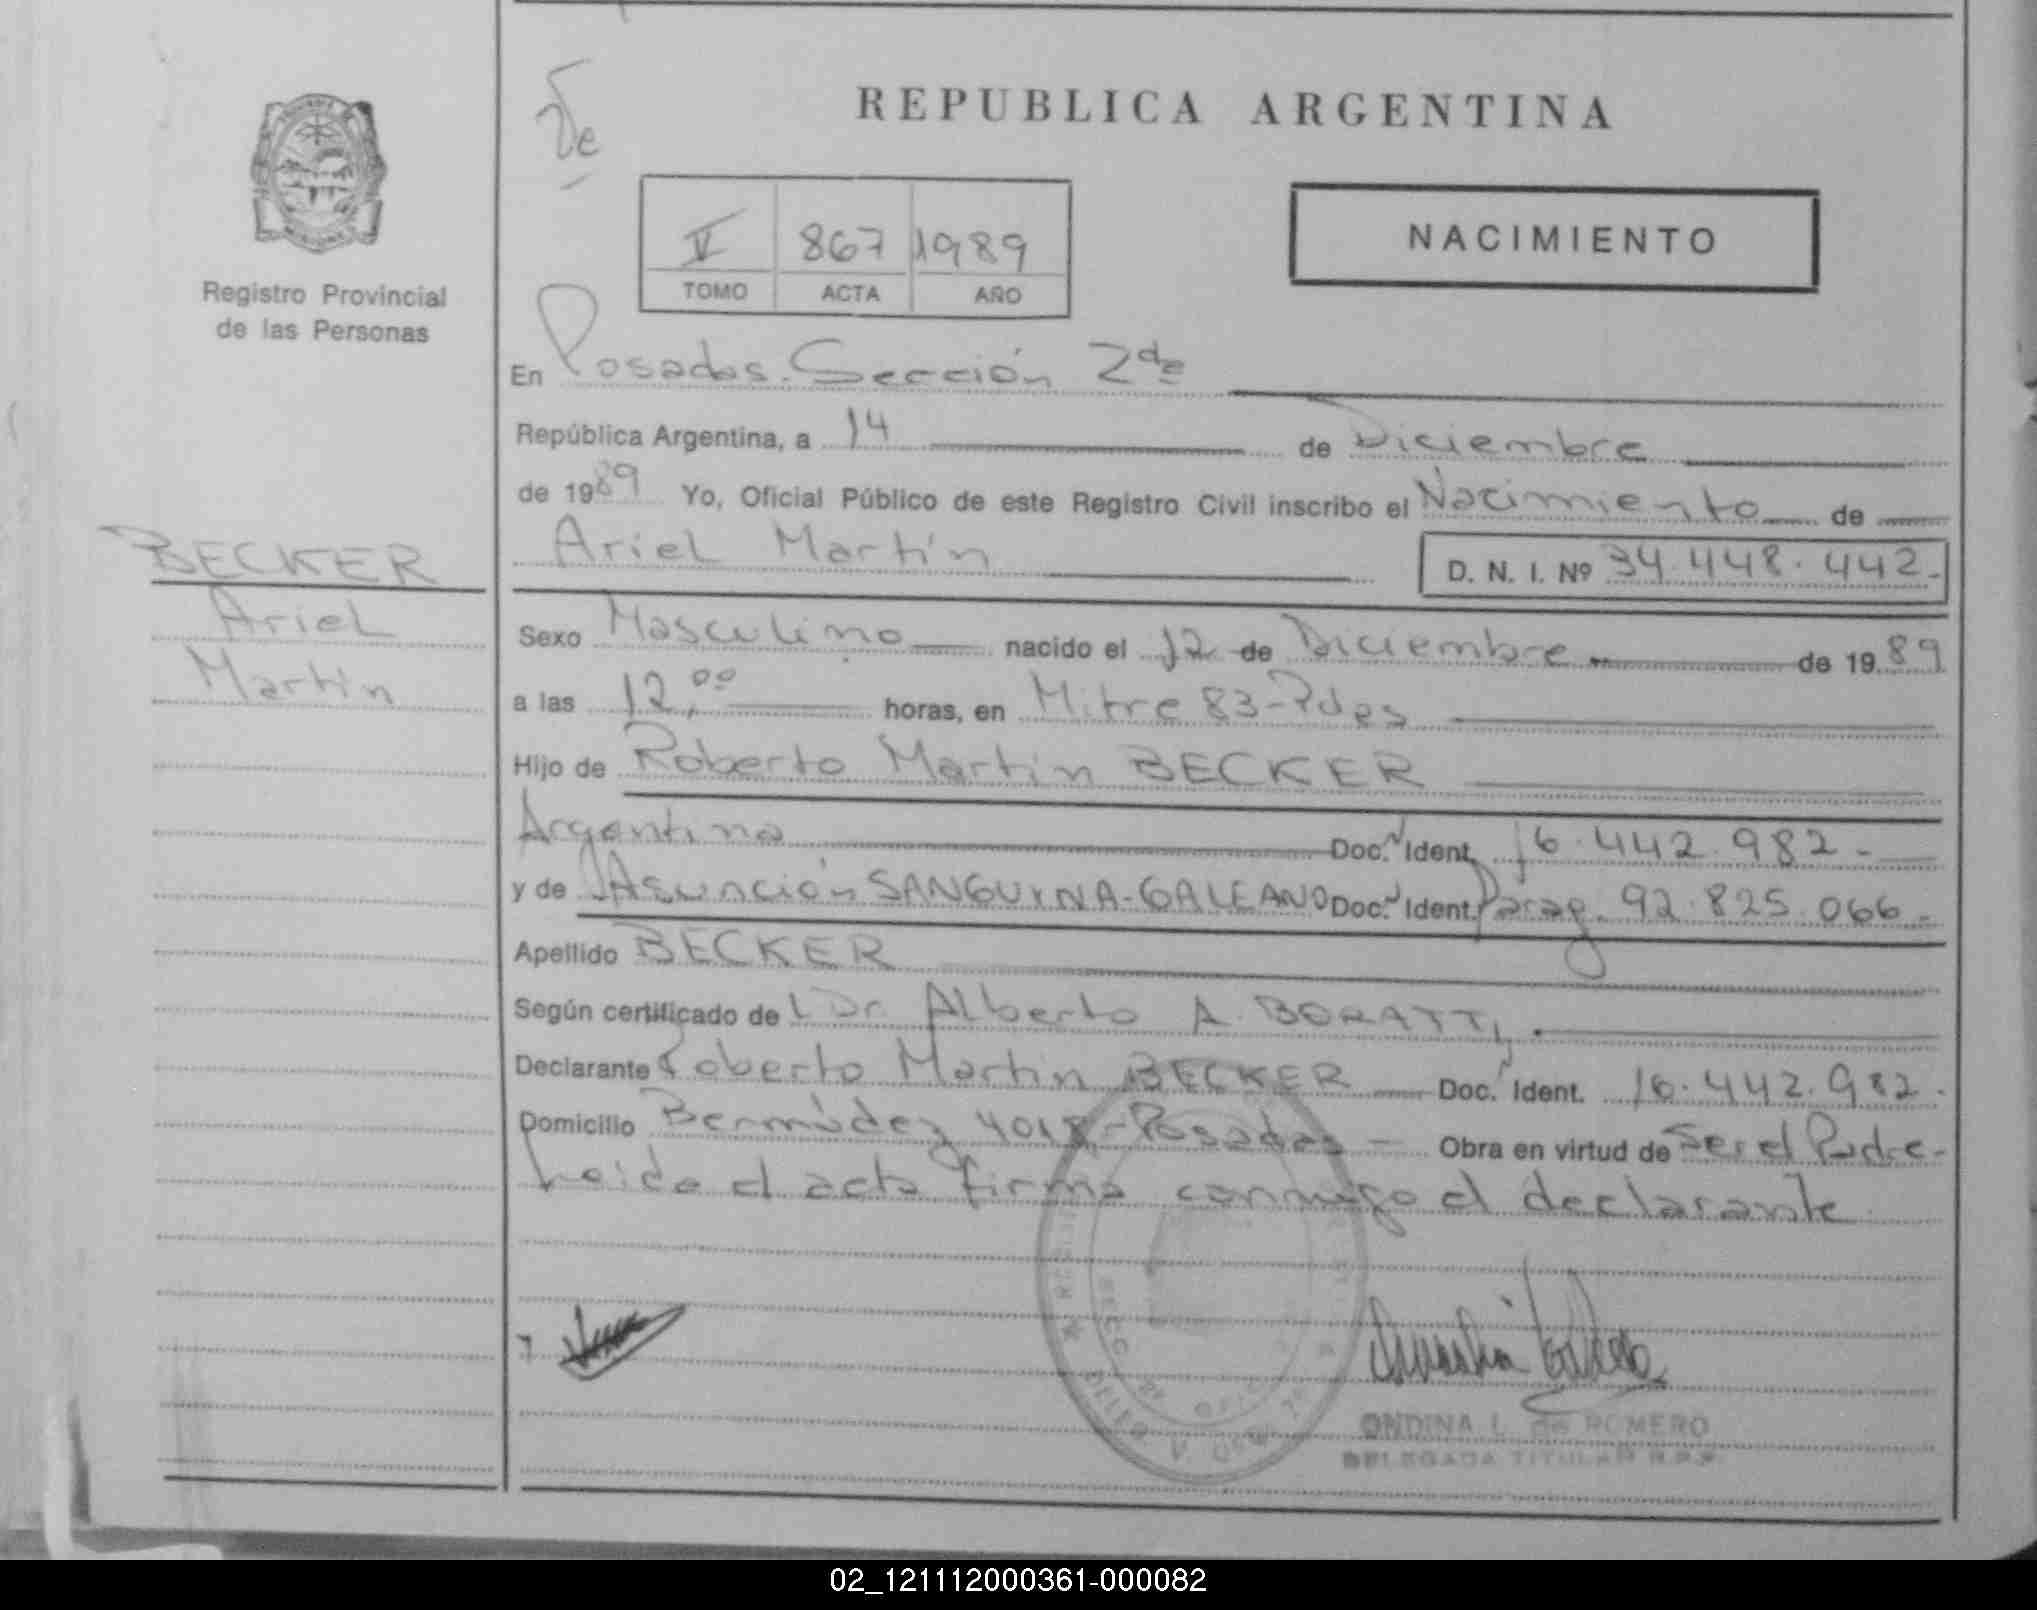 REPUBLICA ARGENTINA
NACIMIENTO
V 867 1989
TOMO ACTA AÑO
Registro Provincial
de las Personas
BECKER
Ariel
Martín
En Posadas. Sección 2da
República Argentina, a 14 de Diciembre
de 1989 Yo, Oficial Público de este Registro Civil inscribo el Nacimiento de
Ariel Martín D. N. I. Nº 34.448.442-
Sexo Masculino nacido el 12 de Diciembre de 1989
a las 12,00 horas, en Mitre 83-Pdas
Hijo de Roberto Martín BECKER
Argentino Doc. Ident. 16.442.982-
y de Asunción SANGUINA-GALEANO Doc. Ident. Parag. 92.825.066-
Apellido BECKER
Según certificado de l Dr. Alberto A. BORATTI
Declarante Roberto Martin BECKER Doc. Ident. 16.442.982.
Domicilio Bermúdez 4018-Posadas- Obra en virtud de Ser el Padre-
Leida el acta firma conmigo el declarante
ONDINA L. de ROMERO
DELEGADA TITULAR R.P.P.
02_121112000361-000082